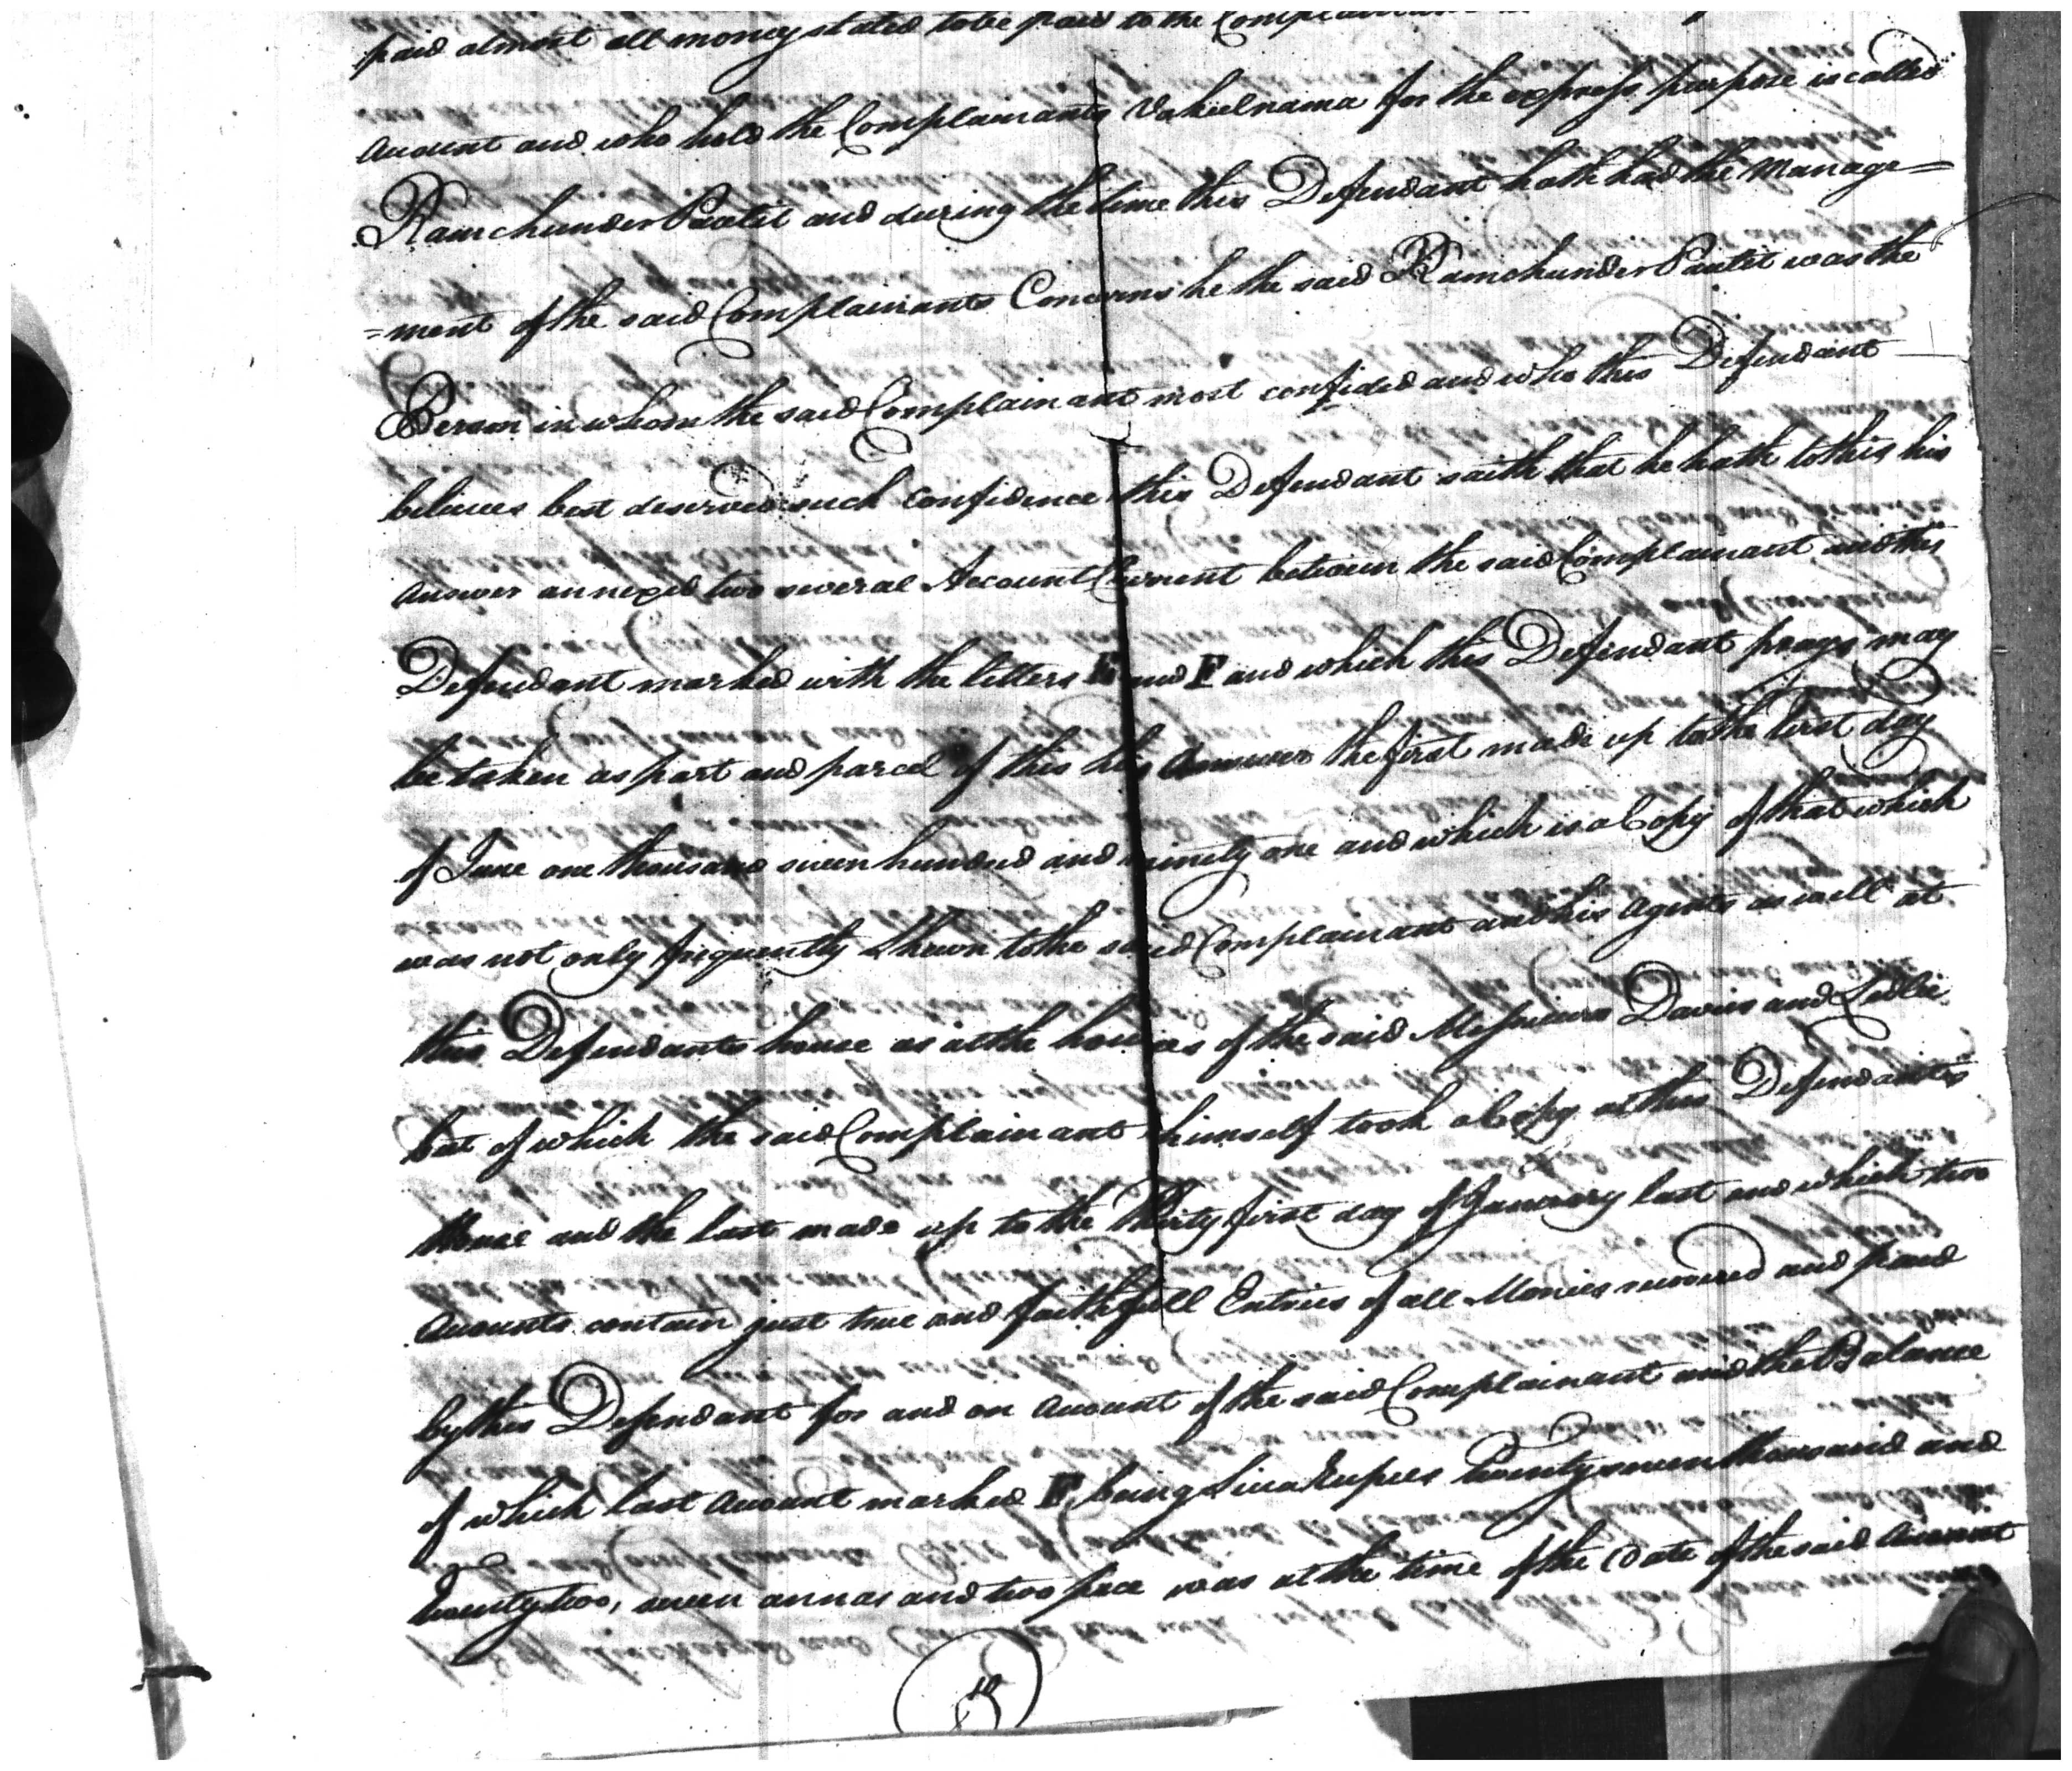 paid almost all money stated to be paid to the Complainant
Account and who held the Complainants Vakeelnama for the express purpose is called
Ramchunder Pautit and during the time this Defendant hath had the Manage=
=ment of the said Complainants Concerns he the said Ramchunder Pautit was the
Person in whom the said Complainant most confided and who this Defendant
believes best deserved such confidence this Defendant saith that he hath to this his
Answer annexed two several Account Current between the said Complainant and this
Defendant marked with the letters E and F and which this Defendant prays may
be taken as part and parcel of this his Answer the first made up to the first day
of June one thousand seven hundred and ninety one and which is a Copy of that which
was not only frequently Shewn to the said Complainant and his Agents as well at
this Defendants house as at the houses of the said Messieurs Davies and Ledlie
but of which the said Complainant himself took a Copy at this Defendants
House and the last made up to the Thirty first day of January last and which two
Accounts contain just true and faithfull Entries of all Monies received and paid
by this Defendant for and on Account of the said Complainant and the Balance
of which last Account marked F being Sicca Rupees Twenty seven thousand and
twenty two, seven annas and two pice was at the time of the Date of the said Account